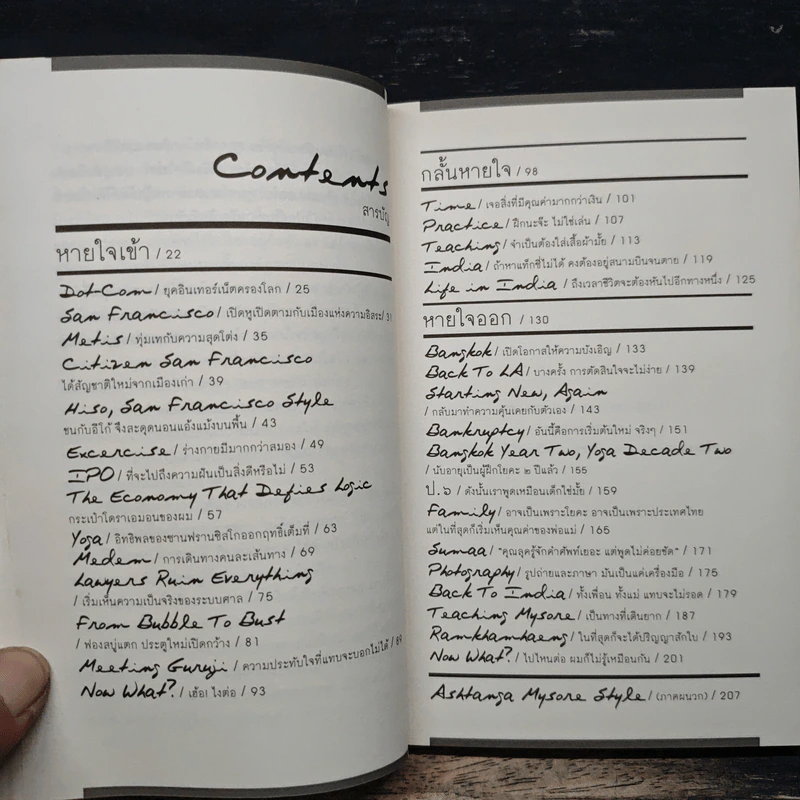 Contents
สารบัญ
หายใจเข้า / 22
Dot-Com / ยุคอินเทอร์เน็ตครองโลก / 25
San Francisco / เปิดหูเปิดตามกับเมืองแห่งความอิสระ / 31
Metis / ทุ่มเทกับความสุดโต่ง / 35
Citizen San Francisco
ได้สัญชาติใหม่จากเมืองเก่า / 39
Hiso, San Francisco Style
ชนกับอีโก้ จึงสะดุดนอนแอ้งแม้งบนพื้น / 43
Excercise / ร่างกายมีมากกว่าสมอง / 49
IPO / ที่จะไปถึงความฝันเป็นสิ่งดีหรือไม่ / 53
The Economy That Defies Logic
กระเป๋าโดราเอมอนของผม / 57
Yoga / อิทธิพลของซานฟรานซิสโกออกฤทธิ์เต็มที่ / 63
Medem / การเดินทางคนละเส้นทาง / 69
Lawyers Ruin Everything
/ เริ่มเห็นความเป็นจริงของระบบศาล / 75
From Bubble To Bust
/ ฟองสบู่แตก ประตูใหม่เปิดกว้าง / 81
Meeting Guruji / ความประทับใจที่แทบจะบอกไม่ได้ / 89
Now What? / เฮ้อ! ไงต่อ / 93
กลั้นหายใจ / 98
Time / เจอสิ่งที่มีคุณค่ามากกว่าเงิน / 101
Practice / ฝึกนะจ๊ะ ไม่ใช่เล่น / 107
Teaching / จำเป็นต้องใส่เสื้อผ้ามั้ย / 113
India / ถ้าหาแท็กซี่ไม่ได้ คงต้องอยู่สนามบินจนตาย / 119
Life in India / ถึงเวลาชีวิตจะต้องหันไปอีกทางหนึ่ง / 125
หายใจออก / 130
Bangkok / เปิดโอกาสให้ความบังเอิญ / 133
Back To LA / บางครั้ง การตัดสินใจจะไม่ง่าย / 139
Starting New, Again
/ กลับมาทำความคุ้นเคยกับตัวเอง / 143
Bankruptcy / อันนี้คือการเริ่มต้นใหม่ จริงๆ / 151
Bangkok Year Two, Yoga Decade Two
/ นับอายุเป็นผู้ฝึกโยคะ ๒ ปีแล้ว / 155
ป.๖ / ดังนั้นเราพูดเหมือนเด็กใช่มั้ย / 159
Family / อาจเป็นเพราะโยคะ อาจเป็นเพราะประเทศไทย
แต่ในที่สุดก็เริ่มเห็นคุณค่าของพ่อแม่ / 165
Sumaa / "คุณลุครู้จักคำศัพท์เยอะ แต่พูดไม่ค่อยชัด" / 171
Photography / รูปถ่ายและภาษา มันเป็นแค่เครื่องมือ / 175
Back To India / ทั้งเพื่อน ทั้งแม่ แทบจะไม่รอด / 179
Teaching Mysore / เป็นทางที่เดินยาก / 187
Ramkhamhaeng / ในที่สุดก็จะได้ปริญญาสักใบ / 193
Now What? / ไปไหนต่อ ผมก็ไม่รู้เหมือนกัน / 201
Ashtanga Mysore Style / (ภาคผนวก) / 207